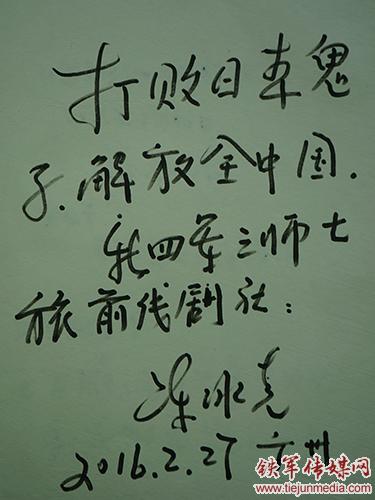 打败日本鬼
子、解放全中国.
新四军三师七
旅前线剧社:
冰克
2016.2.27 广州
铁军传媒网
www.tiejunmedia.com